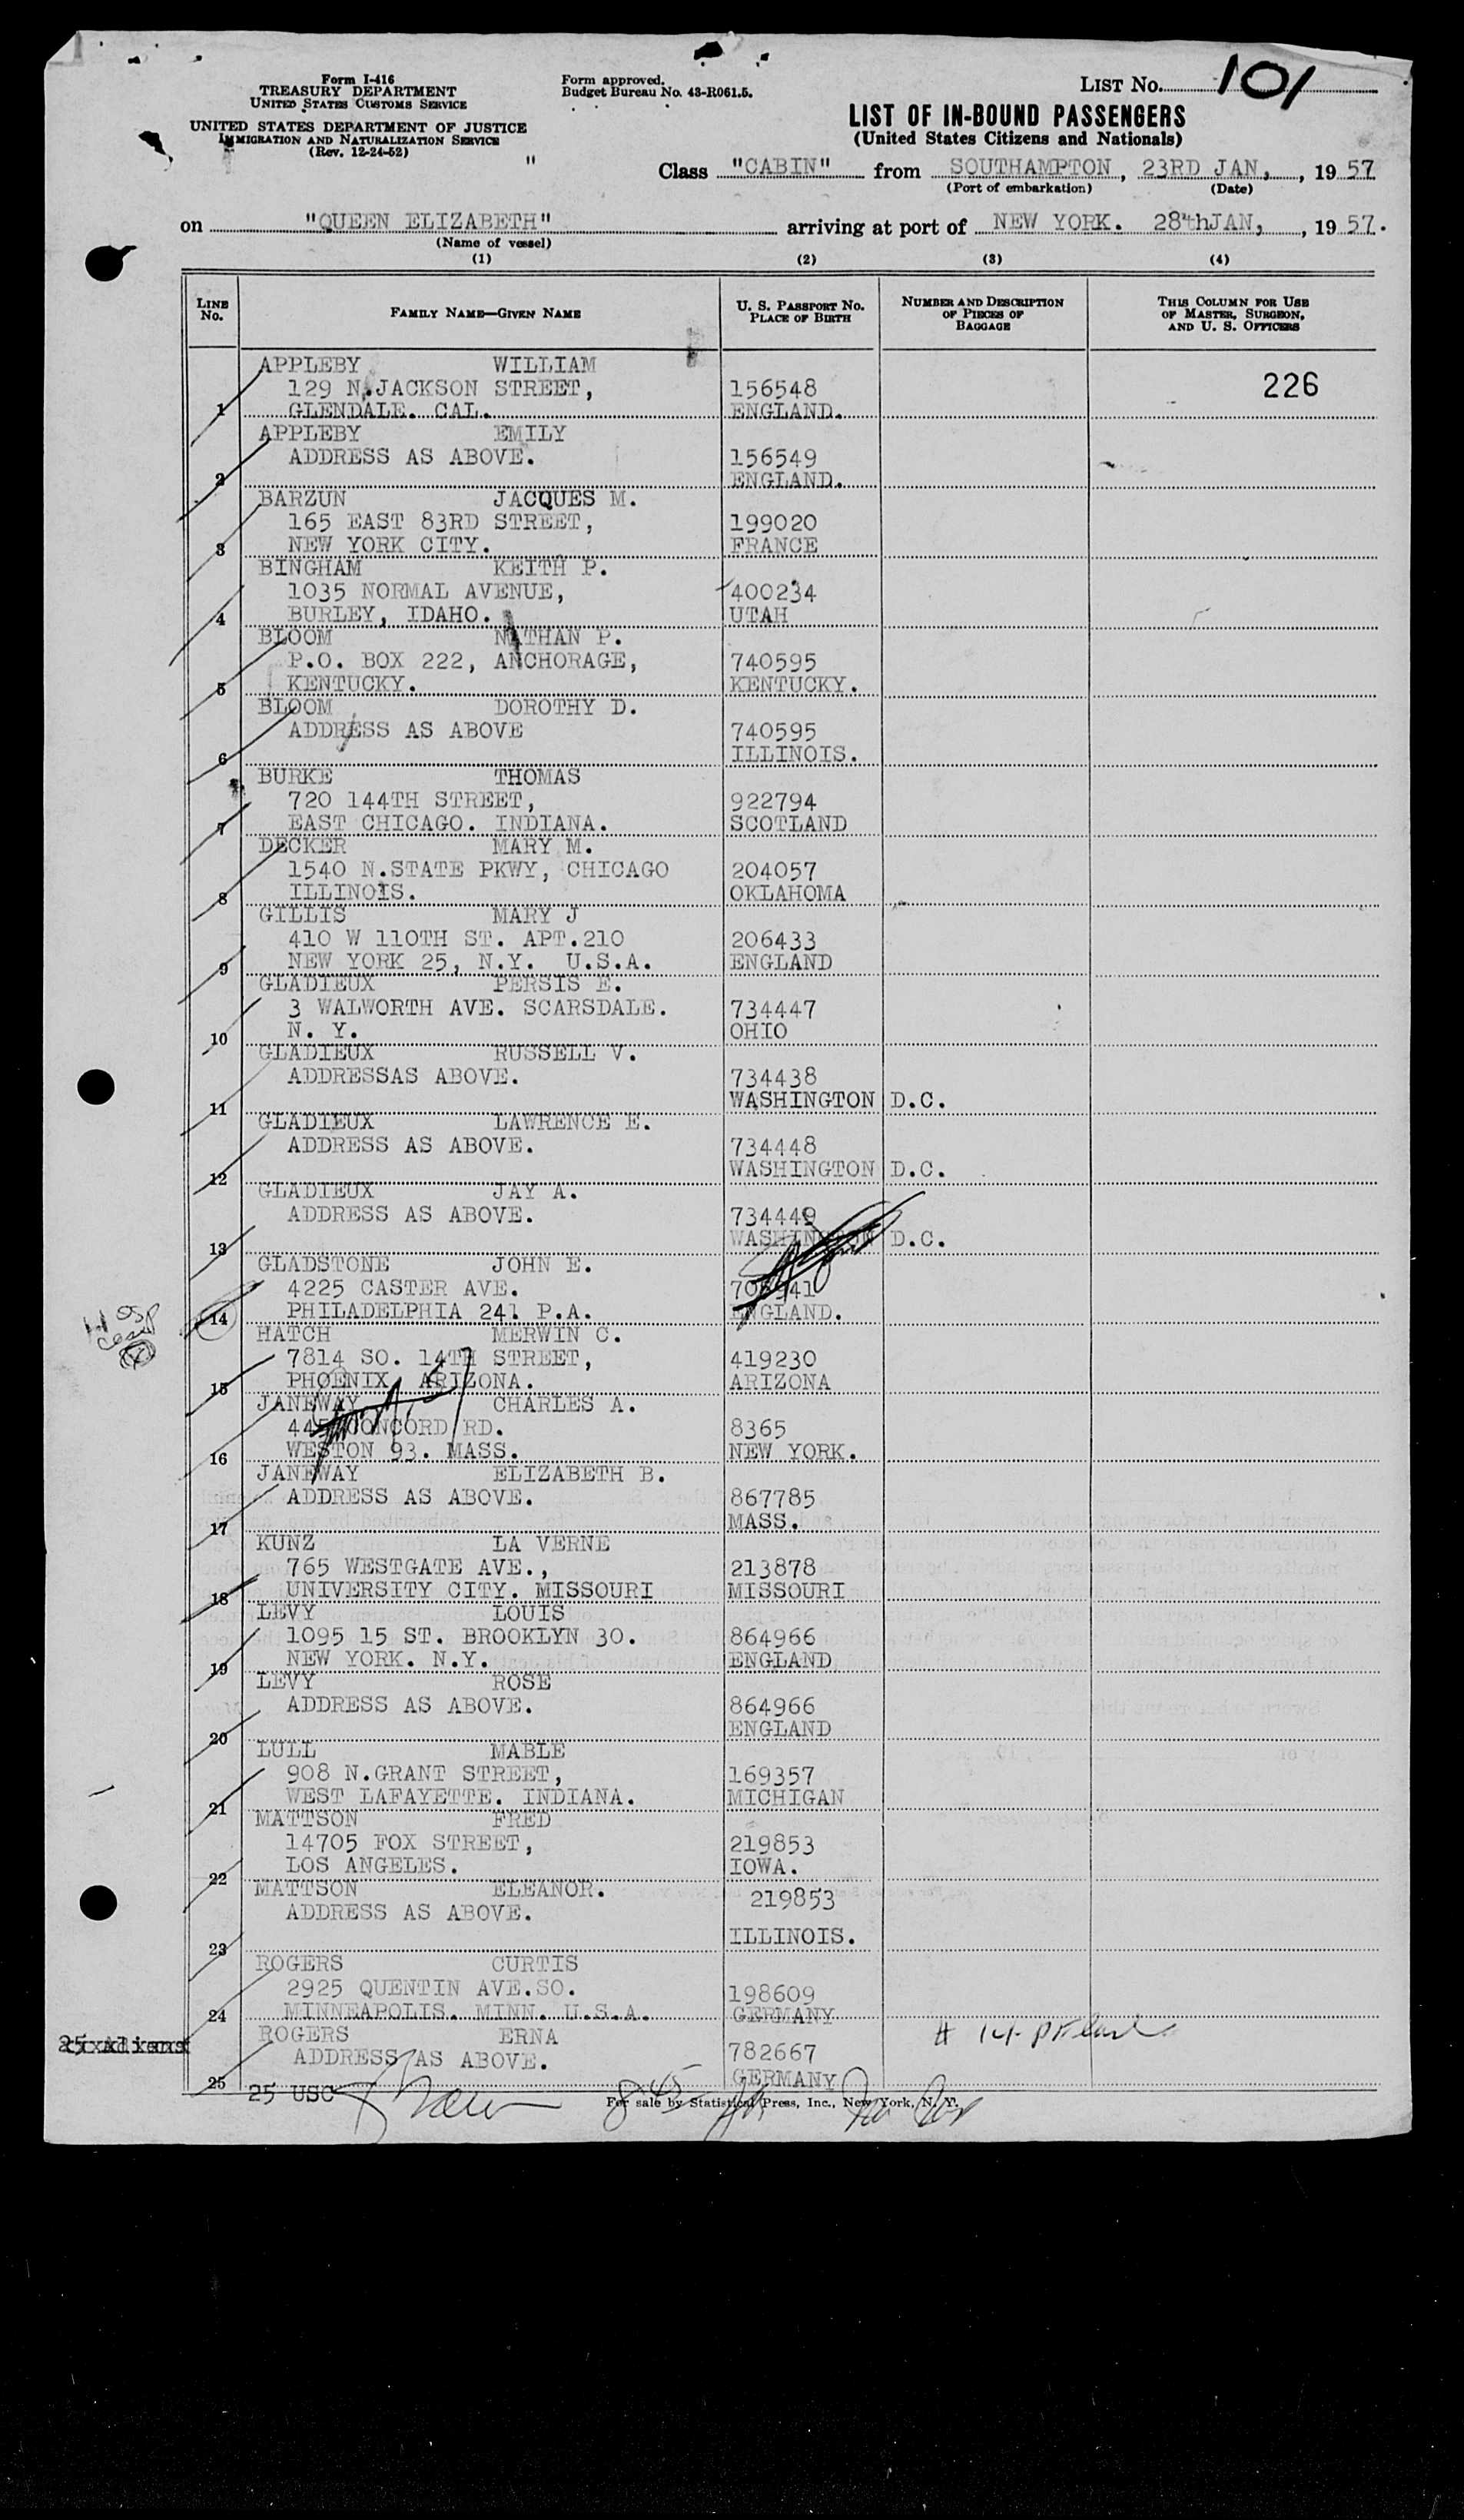 Form I-416
TREASURY DEPARTMENT
UNITED STATES CUSTOMS SERVICE
UNITED STATES DEPARTMENT OF JUSTICE
IMMIGRATION AND NATURALIZATION SERVICE
(Rev. 12-24-52)
Form approved.
Budget Bureau No. 43-R061.5.
LIST No. 101
LIST OF IN-BOUND PASSENGERS
(United States Citizens and Nationals)
"
Class "CABIN" from SOUTHAMPTON, 23RD JAN, , 19 57
(Port of embarkation) (Date)
on "QUEEN ELIZABETH" arriving at port of NEW YORK. 28thJAN, , 19 57.
(Name of vessel)
(1) (2) (3) (4)
LINE No. FAMILY NAME—GIVEN NAME U. S. PASSPORT NO. PLACE OF BIRTH NUMBER AND DESCRIPTION OF PIECES OF BAGGAGE THIS COLUMN FOR USE OF MASTER, SURGEON, AND U. S. OFFICERS
APPLEBY WILLIAM
129 N.JACKSON STREET, 156548 226
1 GLENDALE. CAL. ENGLAND.
APPLEBY EMILY
ADDRESS AS ABOVE. 156549
2 ENGLAND.
BARZUN JACQUES M.
165 EAST 83RD STREET, 199020
3 NEW YORK CITY. FRANCE
BINGHAM KEITH P.
1035 NORMAL AVENUE, 400234
4 BURLEY, IDAHO. UTAH
BLOOM NATHAN P.
P.O. BOX 222, ANCHORAGE, 740595
5 KENTUCKY. KENTUCKY.
BLOOM DOROTHY D.
ADDRESS AS ABOVE 740595
6 ILLINOIS.
BURKE THOMAS
720 144TH STREET, 922794
7 EAST CHICAGO. INDIANA. SCOTLAND
DECKER MARY M.
1540 N.STATE PKWY, CHICAGO 204057
8 ILLINOIS. OKLAHOMA
GILLIS MARY J
410 W 110TH ST. APT.210 206433
9 NEW YORK 25, N.Y. U.S.A. ENGLAND
GLADIEUX PERSIS E.
3 WALWORTH AVE. SCARSDALE. 734447
10 N. Y. OHIO
GLADIEUX RUSSELL V.
ADDRESSAS ABOVE. 734438
11 WASHINGTON D.C.
GLADIEUX LAWRENCE E.
ADDRESS AS ABOVE. 734448
12 WASHINGTON D.C.
GLADIEUX JAY A.
ADDRESS AS ABOVE. 734449
13 WASHINGTON D.C.
GLADSTONE JOHN E.
4225 CASTER AVE.
14 PHILADELPHIA 241 P.A. ENGLAND.
HATCH MERWIN C.
7814 SO. 14TH STREET, 419230
15 PHOENIX, ARIZONA. ARIZONA
JANEWAY CHARLES A.
CONCORD RD. 8365
16 WESTON 93. MASS. NEW YORK.
JANEWAY ELIZABETH B.
ADDRESS AS ABOVE. 867785
17 MASS.
KUNZ LA VERNE
765 WESTGATE AVE., 213878
18 UNIVERSITY CITY. MISSOURI MISSOURI
LEVY LOUIS
1095 15 ST. BROOKLYN 30. 864966
19 NEW YORK. N.Y. ENGLAND
LEVY ROSE
ADDRESS AS ABOVE. 864966
20 ENGLAND
LULL MABLE
908 N.GRANT STREET, 169357
21 WEST LAFAYETTE. INDIANA. MICHIGAN
MATTSON FRED
14705 FOX STREET, 219853
22 LOS ANGELES. IOWA.
MATTSON ELEANOR. 219853
ADDRESS AS ABOVE.
23 ILLINOIS.
ROGERS CURTIS
2925 QUENTIN AVE.SO. 198609
24 MINNEAPOLIS. MINN. U.S.A. GERMANY
ROGERS ERNA # 14
ADDRESS AS ABOVE. 782667
25 GERMANY
25 USC
For sale by Statistical Press, Inc., New York, N. Y.